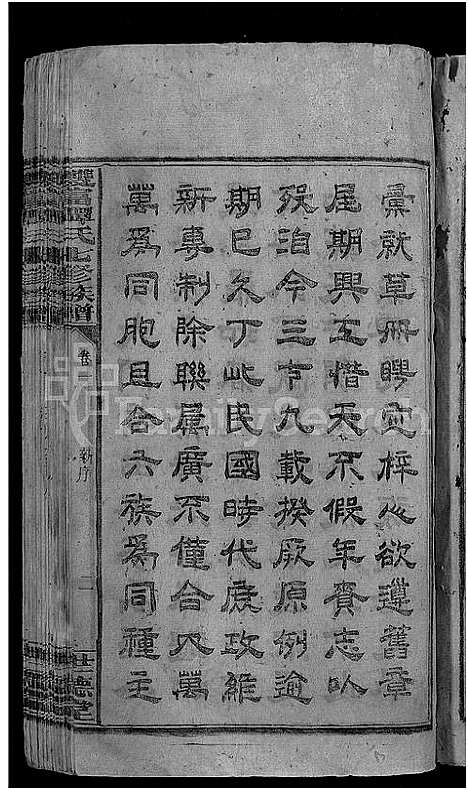 彙就草册聘定梓心欲遵舊章
屆期興工惜天不假年賫志以
歿洎今三十九載揆厥原例逾
期已久丁此民國時代庶政維
新專制除聯屬廣不僅合人萬
萬為同胞且合六族為同種主
氏七修族譜
卷
新序
二
德堂
FamilySearch